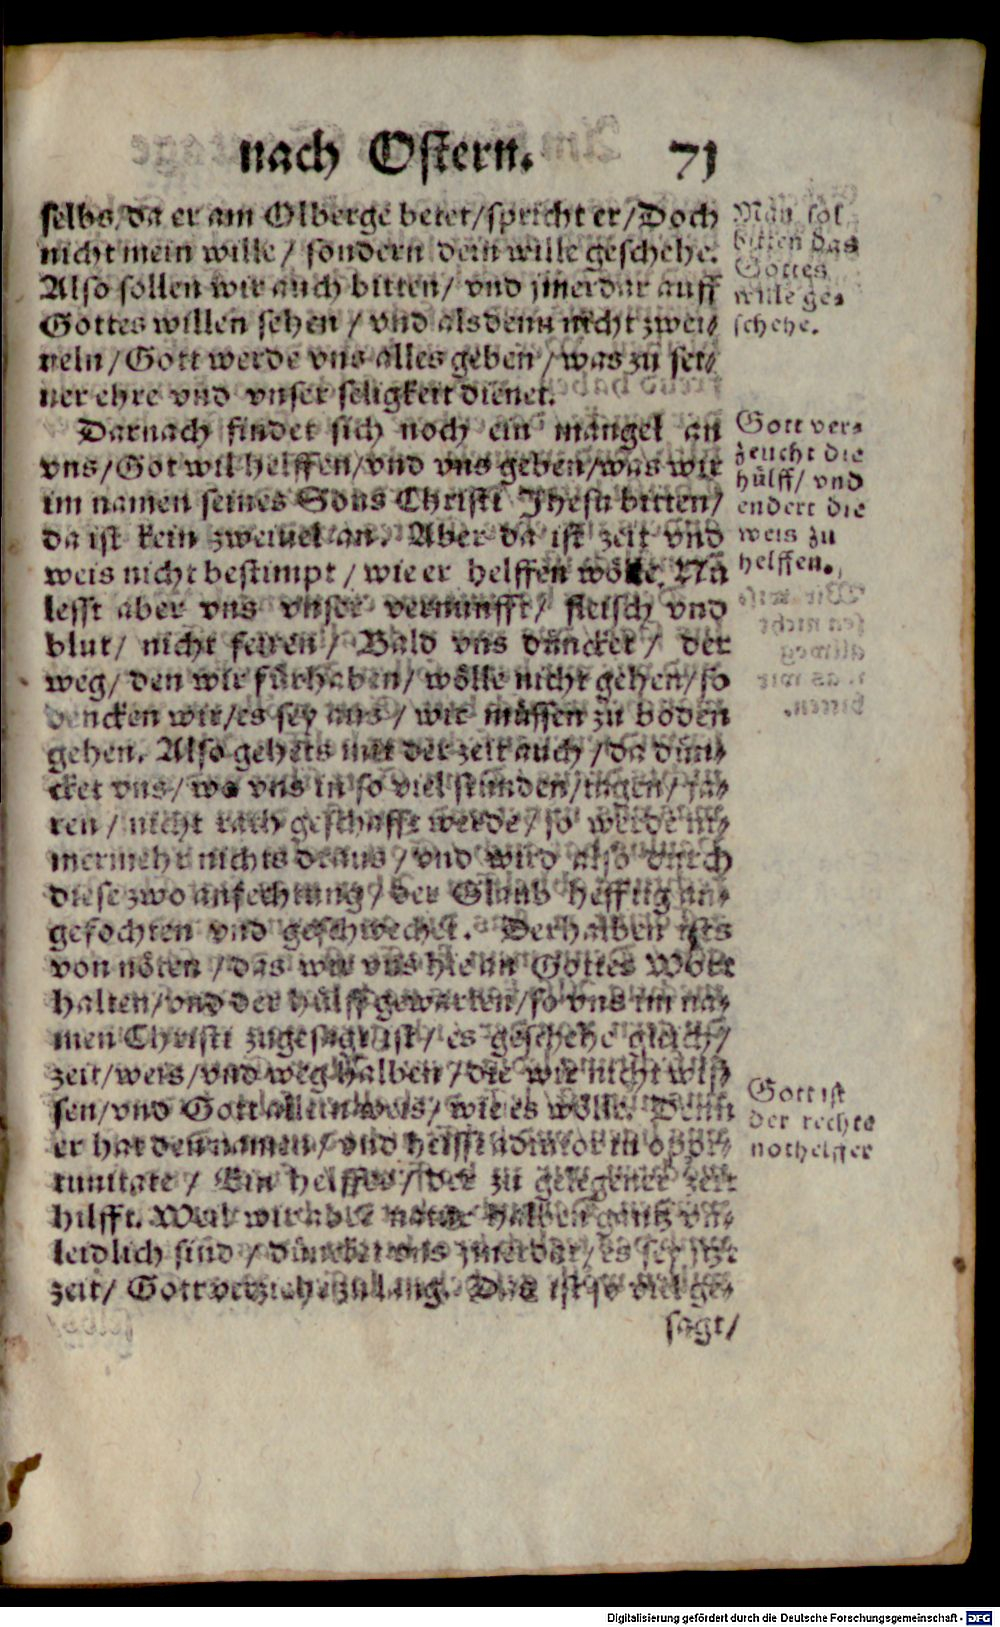 nach Ostern. 71
selbs/da er am Olberge betet/spricht er/Doch
nicht mein wille/ sondern dein wille geschehe.
Also sollen wir auch bitten/ vnd jmerdar auff
Gottes willen sehen / vnd alsdenn nicht zwei-
ueln/Gott werde vns alles geben / was zu sei-
ner ehre vnd vnser seligkeit dienet.
Man sol
bitten das
Gottes
wille ge-
schehe.
Darnach findet sich noch ein mangel an
vns/Got wil helffen/vnd vns geben/was wir
im namen seines Sons Christi Jhesu bitten/
da ist kein zweiuel an. Aber da ist zeit vnd
weis nicht bestimpt / wie er helffen wölle. Nu
lesst aber vns vnser vernunfft/ fleisch vnd
blut/ nicht feiren/ Bald vns düncket/ der
weg/ den wir fürhaben/ wölle nicht gehen/so
dencken wir/es sey aus/ wir müssen zu boden
gehen. Also gehets mit der zeit auch /da dün-
cket vns/ wo vns in so viel stunden/tagen/ ja-
ren/ nicht rath geschafft werde/ so werde ni-
mermehr nichts draus/ vnd wird also durch
diese zwo anfechtung/ der Glaub hefftig an-
gefochten vnd geschwechet. Derhalben ists
von nöten /das wir vns hie an Gottes Wort
halten/vnd der hülff gewarten/so vns im na-
men Christi zugesagt ist/ es geschehe gleich/
zeit/weis/vnd weg halben /die wir nicht wis-
sen/vnd Gott allein weis/ wie es wölle. Denn
er hat den namen/ vnd heisst adiutor in oppor-
tunitate / Ein helffer/ der zu gelegener zeit
hilfft. Weil wir aber halben gantz vn-
leidlich sind / düncket vns jmerdar/es sey jtzt
zeit/ Gott verziehe zu lang. Das ist so viel ge-
sagt/
Gott ver-
zeucht die
hülff/ vnd
endert die
weis zu
helffen.
Gott ist
der rechte
nothelffer
Digitalisierung gefördert durch die Deutsche Forschungsgemeinschaft - DFG